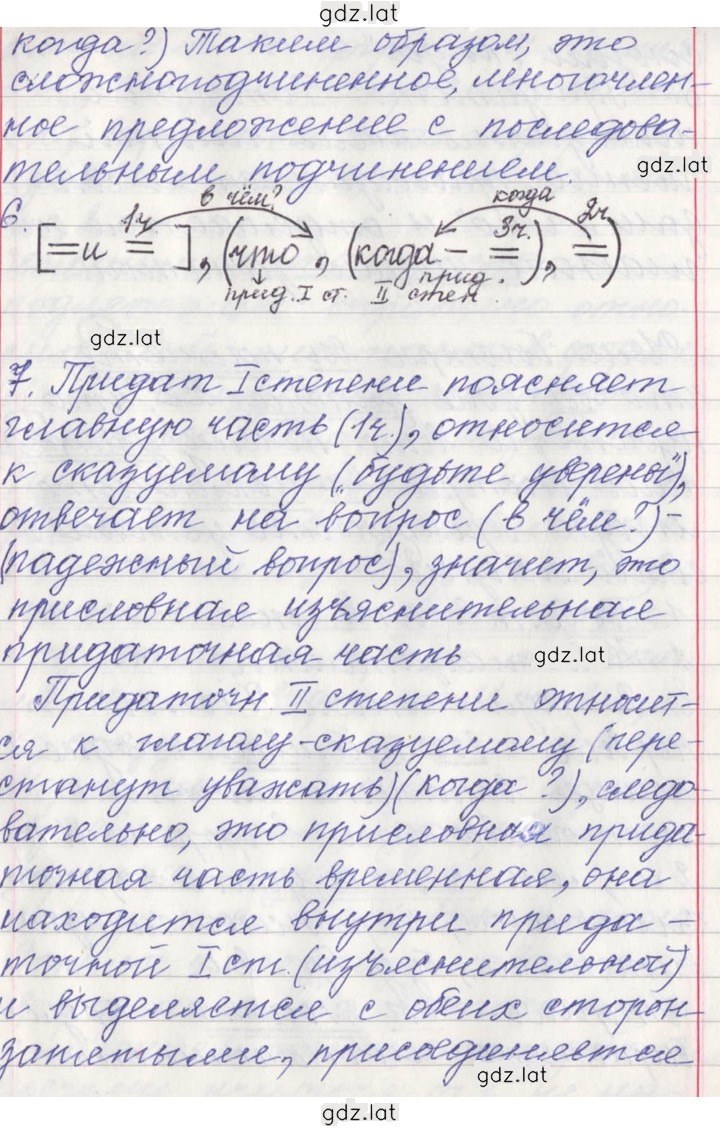 gdz.lat
когда?) Таким образом, это
сложноподчиненное, многочлен-
ное предложение с последова-
тельным подчинением.
gdz.lat
в чём? когда
6. 1ч. 3ч. 2ч.
[= и =], (что, (когда – =), =)
прид. I ст. прид. II степ.
gdz.lat
7. Придат I степени поясняет
главную часть (1ч.), относится
к сказуемому („будьте уверены"),
отвечает на вопрос (в чём?) -
(падежный вопрос), значит, это
присловная изъяснительная
придаточная часть
gdz.lat
Придаточн II степени относит-
ся к глаголу-сказуемому (пере-
станут уважать) (когда?), следо-
вательно, это присловная прида-
точная часть временная, она
находится внутри прида -
точной I ст. (изъяснительной)
и выделяется с обеих сторон
запятыми, присоединяется
gdz.lat
gdz.lat